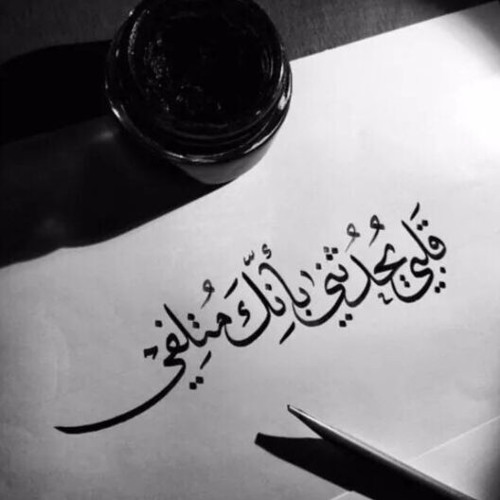 قَلبي يُحَدِّثُني بأَنَّكَ مُتلِفي